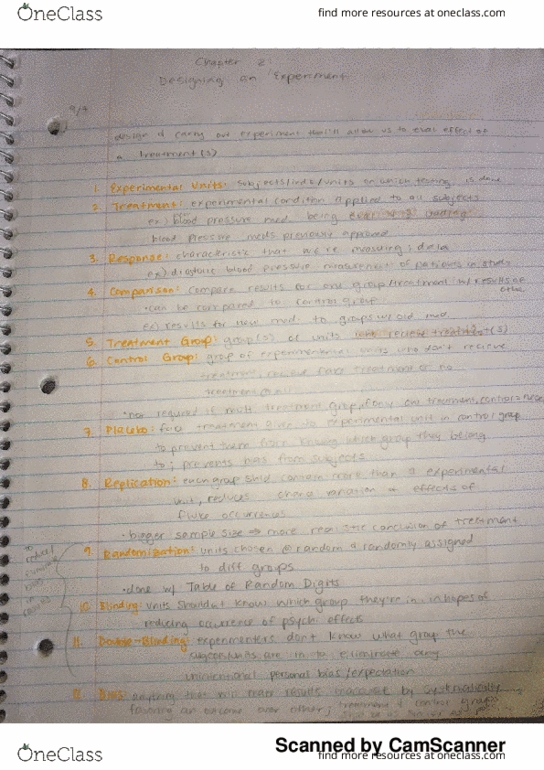 OneClass
find more resources at oneclass.com
Chapter 2:
Designing an Experiment
9/7
design & carry out experiment that'll allow us to eval effect of
a treatment(s)
1. Experimental Units: subjects/indiv/units on which testing is done
2. Treatment: experimental condition applied to all subjects
ex) blood pressure med being
blood pressure meds previously approved
3. Response: characteristic that we're measuring
ex) diastolic blood pressure measurement of patients in study
4. Comparison: compare results for one group/treatment w/ results of other
• can be compared to control group
ex) results for new med to group w/ old med
5. Treatment Group: group(s) of units who recieve treatment(s)
6. Control Group: group of experimental units who don't recieve
treatment, recieve fake treatment or no
treatment @ all
• not required if mult treatment group, if only one treatment, control
7. Placebo: fake treatment given to experimental unit in control group
to prevent them from knowing which group they belong
to; prevents bias from subjects
8. Replication: each group shld contain more than 1 experimental
unit, reduces chance variation & effects of
fluke occurrences
• bigger sample size → more realistic conclusion of treatment
9. Randomization: units chosen @ random & randomly assigned
to diff groups
• done w/ Table of Random Digits
10. Blinding: units shouldn't know which group they're in, in hopes of
reducing occurence of psych effect
11. Double-Blinding: experimenters don't know what group the
subject/units are in to eliminate any
unintentional personal bias/expectation
12. Bias: anything that may make results inaccurate by systematically
favoring an outcome over other; treatment & control groups
Scanned by CamScanner
OneClass
find more resources at oneclass.com